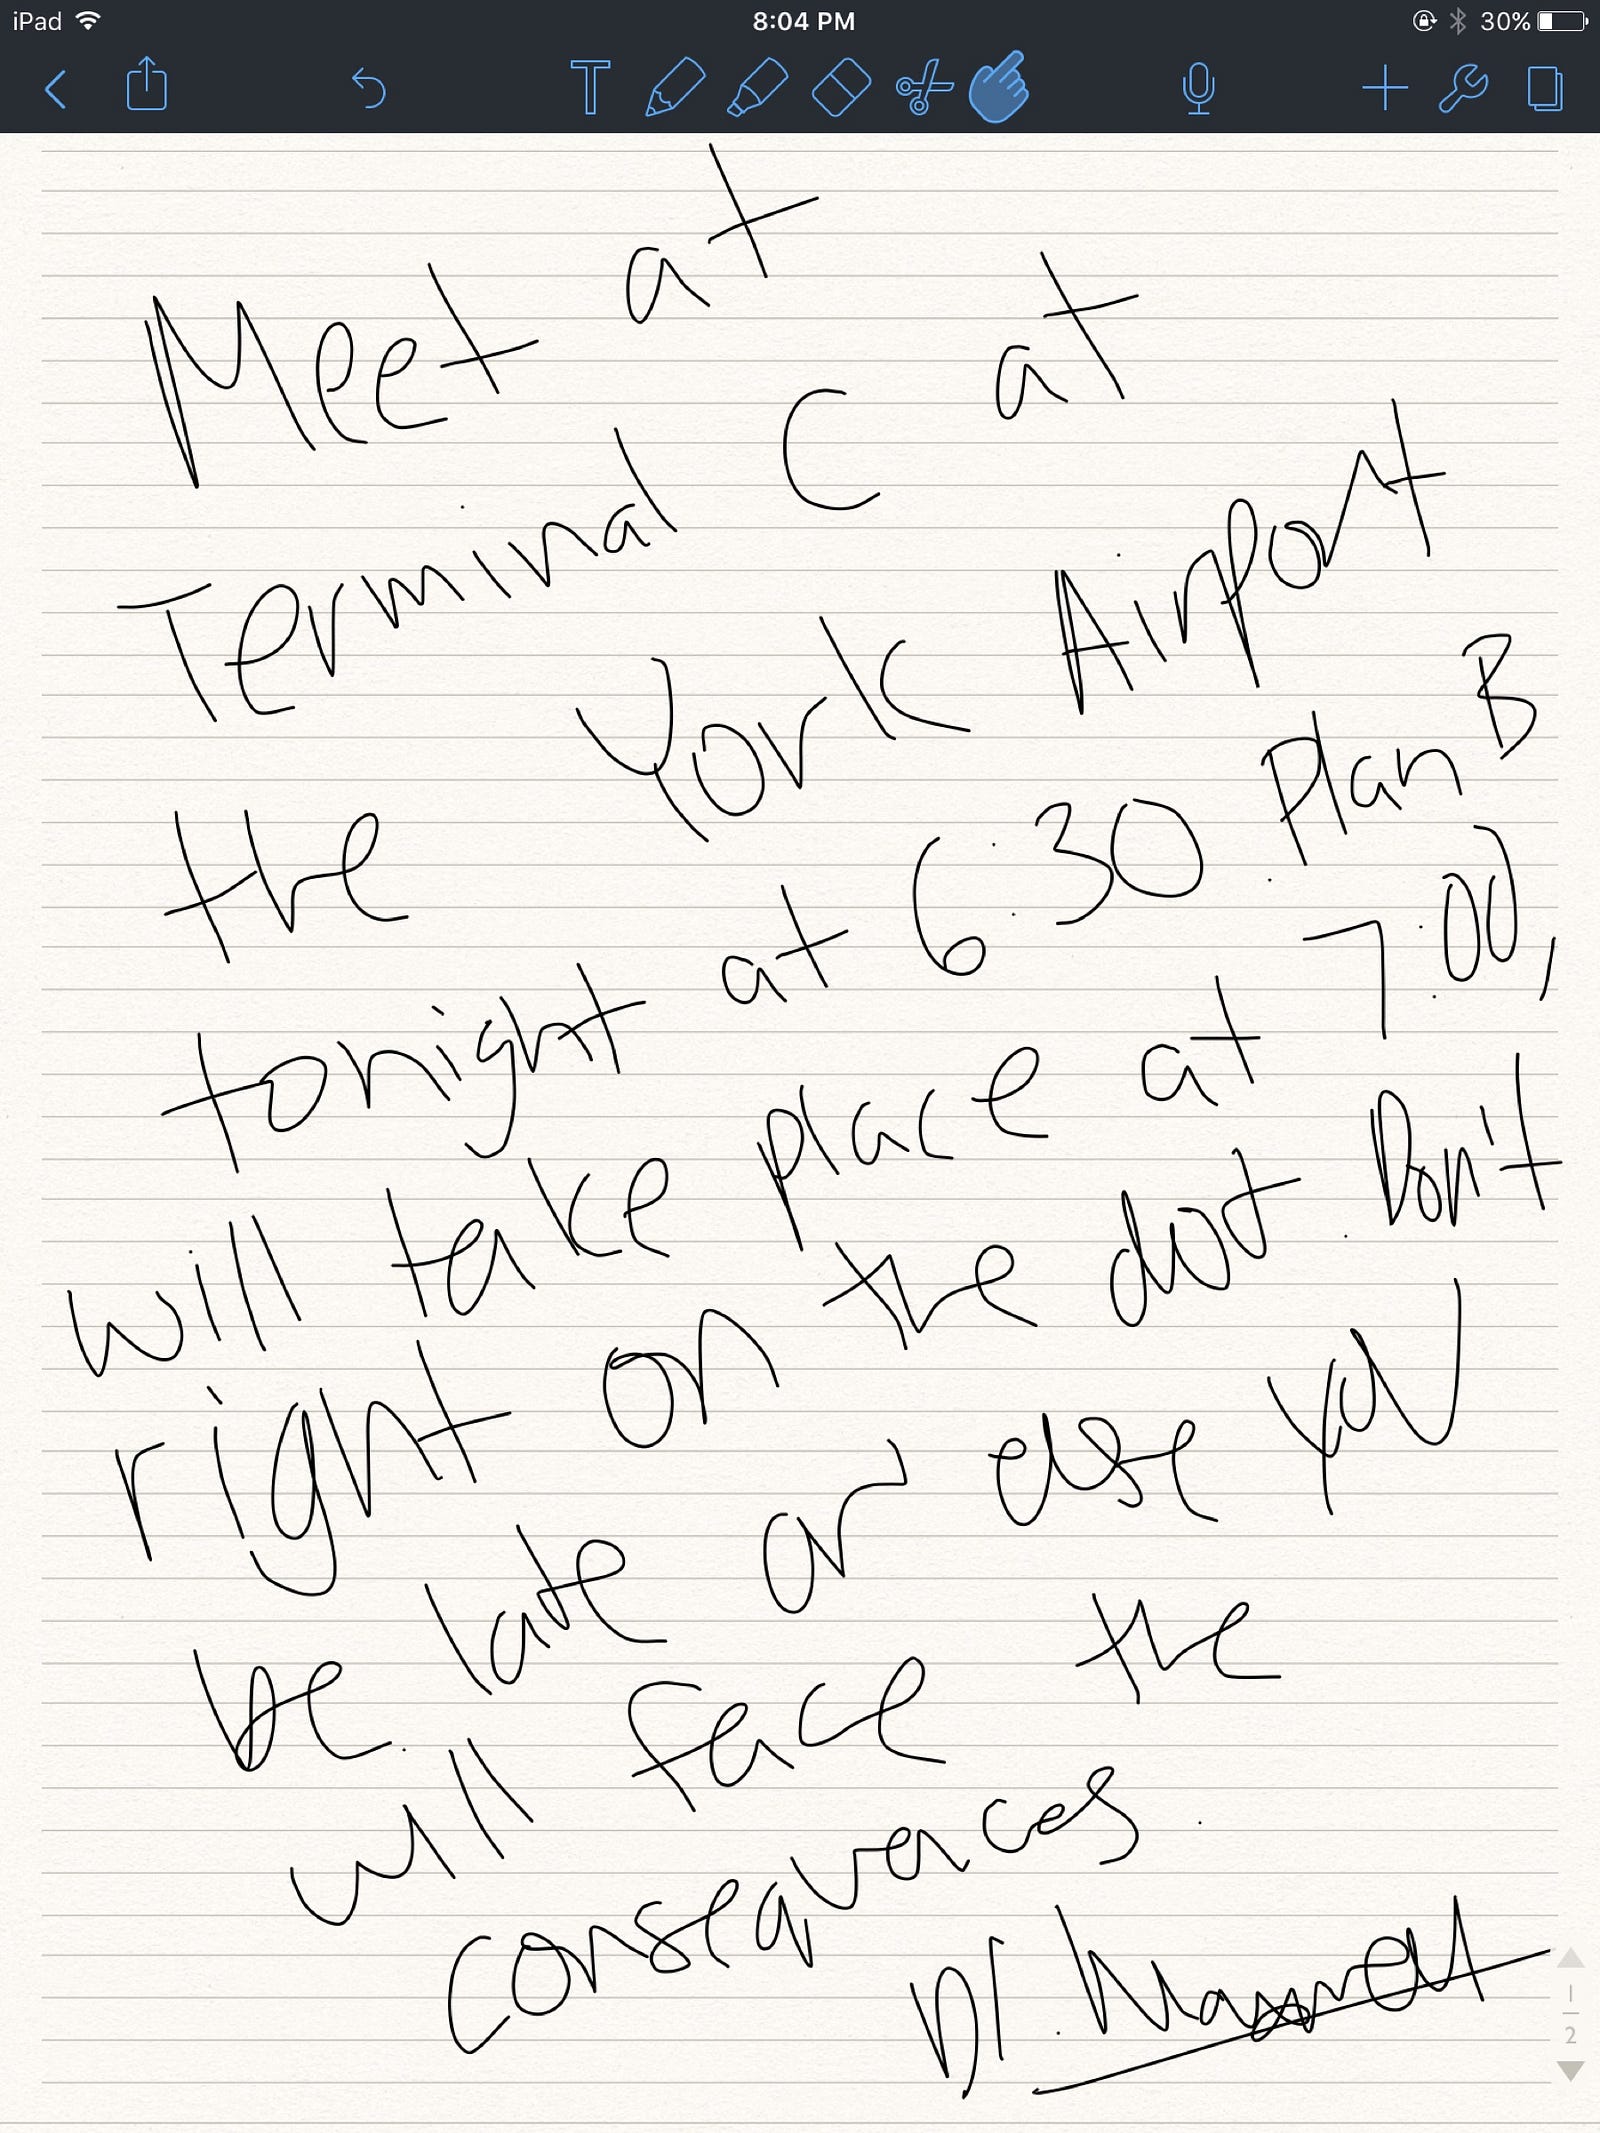 iPad 8:04 PM 30%
T
Meet at
Terminal C at
the York Airport
tonight at 6:30. Plan B
will take place at 7:00,
right on the dot. Don't
be late or else you
will face the
consequences.
Dr. Maxwell
1
2